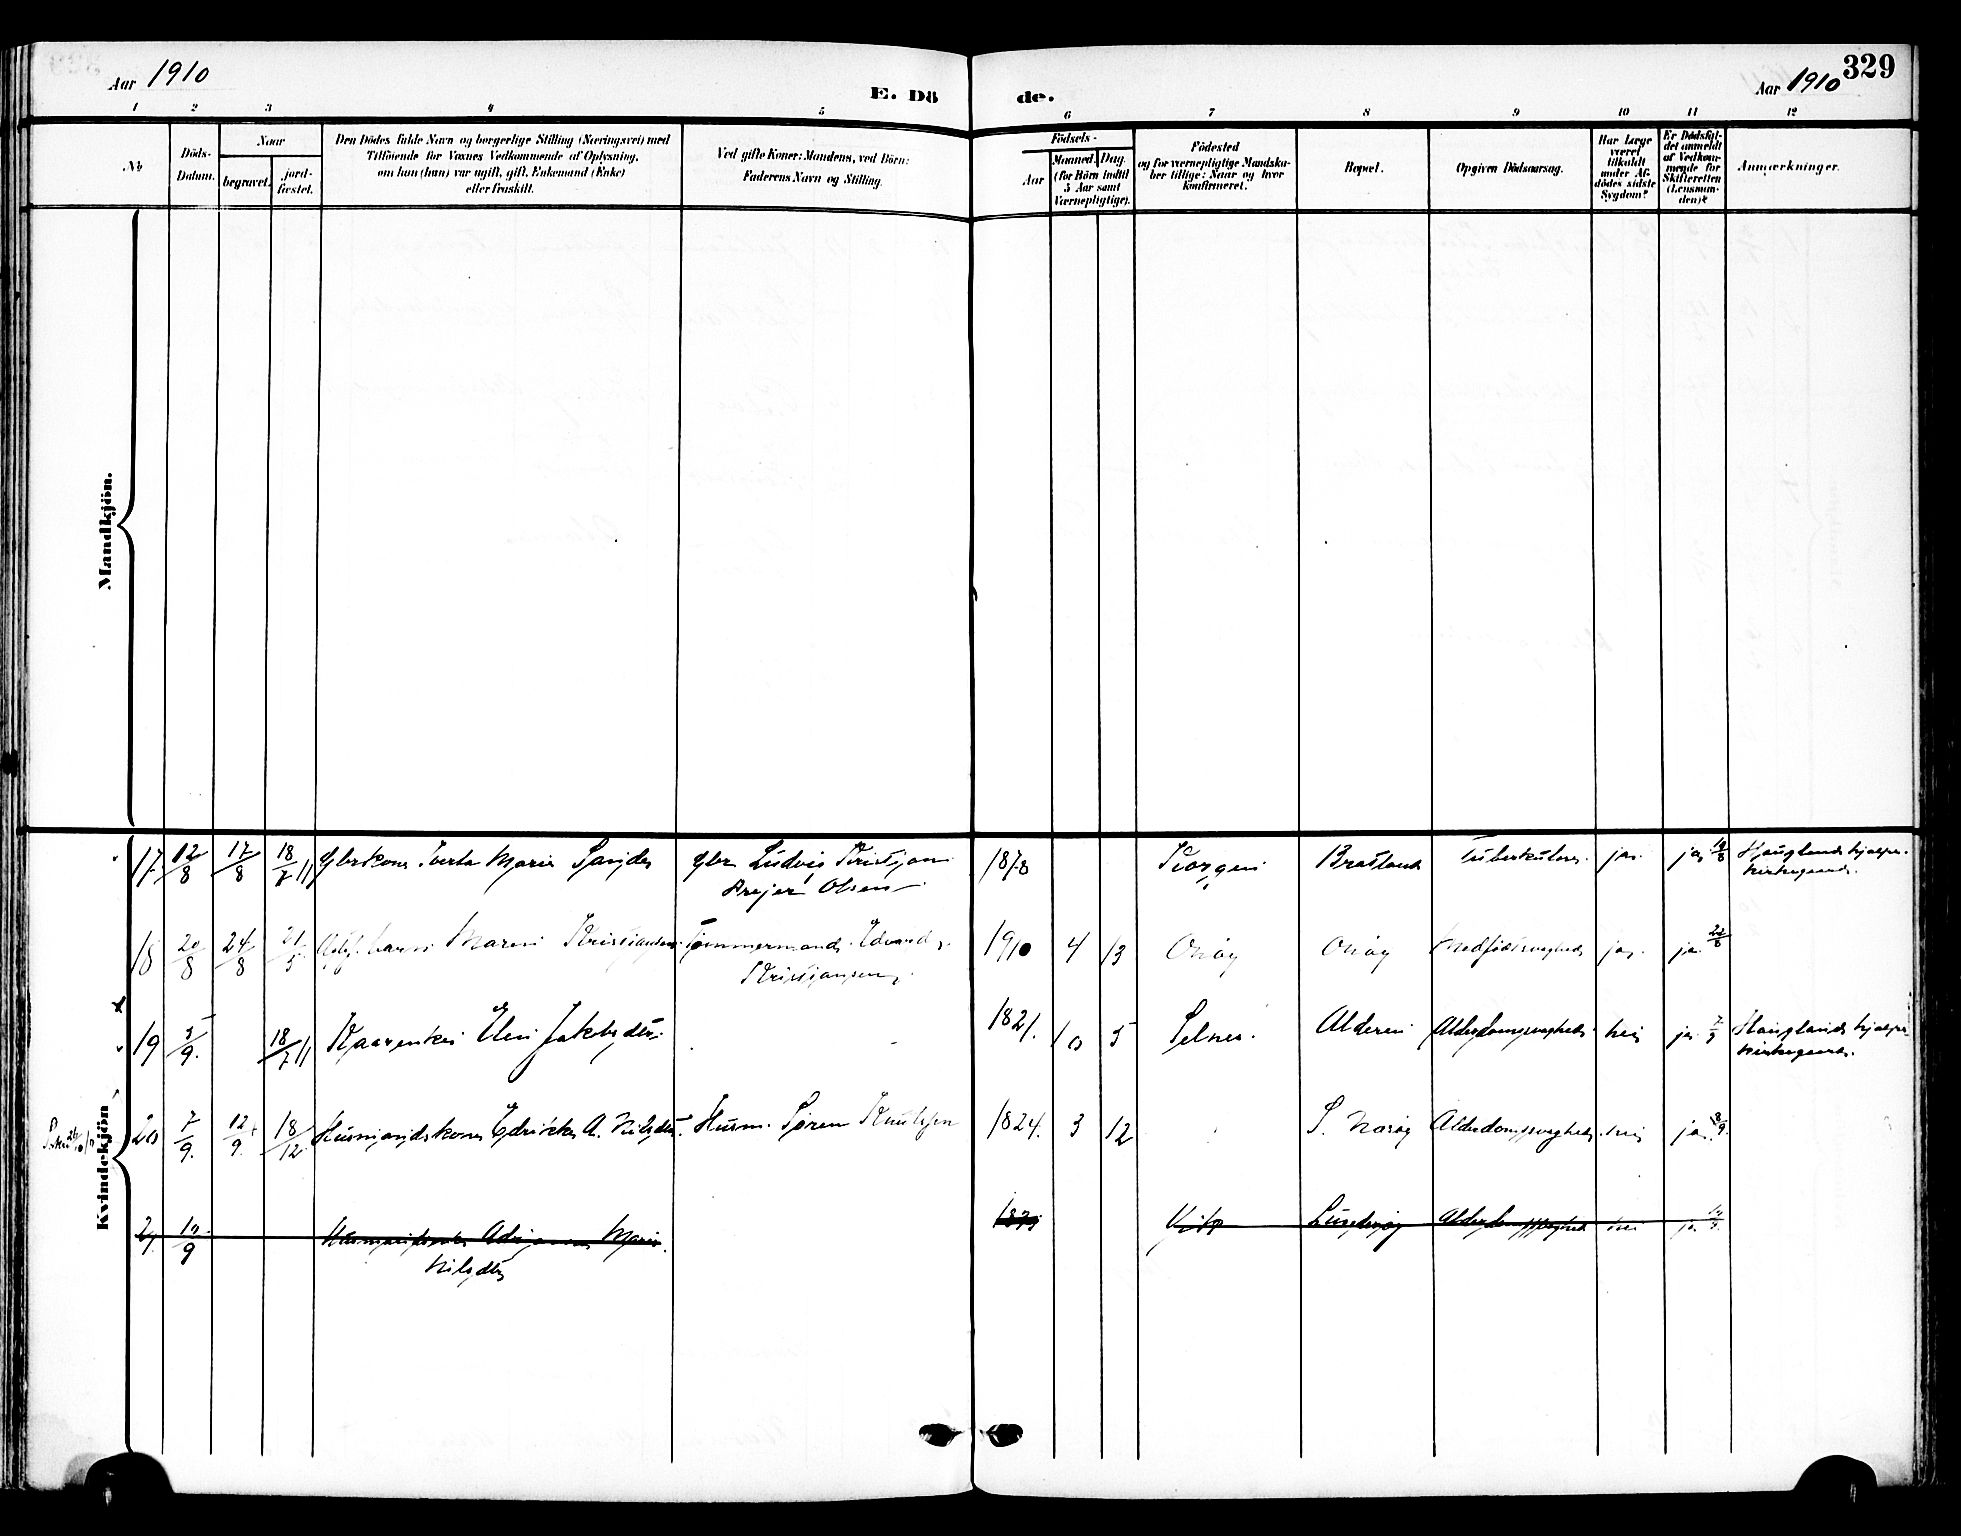 Aar 1910
E. Dö
de.
Aar 1910
329
1 2 3 4 5 6 7 8 9 10 11 12
No
Döds-
Datum.
Naar
begravet.
jord-
fæstet.
Den Dödes fulde Navn og borgerlige Stilling (Næringsvei) med
Tilföiende for Voxnes Vedkommende af Oplysning,
om han (hun) var ugift, gift, Enkemand (Enke)
eller fraskilt.
Ved gifte Koner: Mandens, ved Börn:
Faderens Navn og Stilling.
Födsels-
Aar
Maaned. Dag.
(for Börn indtil
5 Aar samt
Værnepligtige).
Födested
og for værnepligtige Mandska-
ber tillige: Naar og hvor
konfirmeret.
Bopæl.
Opgiven Dödsaarsag.
Har Læge
været
tilkaldt
under Af-
dödes sidste
Sygdom?
Er Dödsfal-
det anmeldt
af Vedkom-
mende for
Skifteretten
(Lensman-
den)?
Anmærkninger.
Mandkjön.
Kvindekjön
17 12/8 17/8 18/7 11 Gbrkone Maria gbr Ludvig Kristian 1878 Korgen Bratland Tuberkulose ja. ja 18/8 Hauglands hjælpe-
Olsen kirkegaard.
18 20/8 24/8 21/5 barn Maren Kristiansen Tømmermand Edvard 1910 4 13 Ørsøg Ørsøg Medfødt svaghed ja. ja. 22/8
Kristiansen
19 5/9. 18/7 11 Elen Jakobsdtr. 1821. 10 5 Selnes. Alderen Alderdomssvaghed nei ja. 7/9 Hauglands hjælpe-
kirkegaard.
20 7/9. 12/9. 18/12 Husmandskone A. Nilsdtr. Husm. Søren Knutsen 1824. 3 12 S. Næsøy Alderdomssvaghed. nei ja. 8/9.
21. 10/9 Maria
Nilsdtr
Alderdomssvaghed nei ja